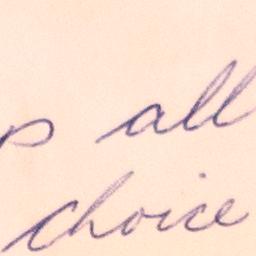 all
choice